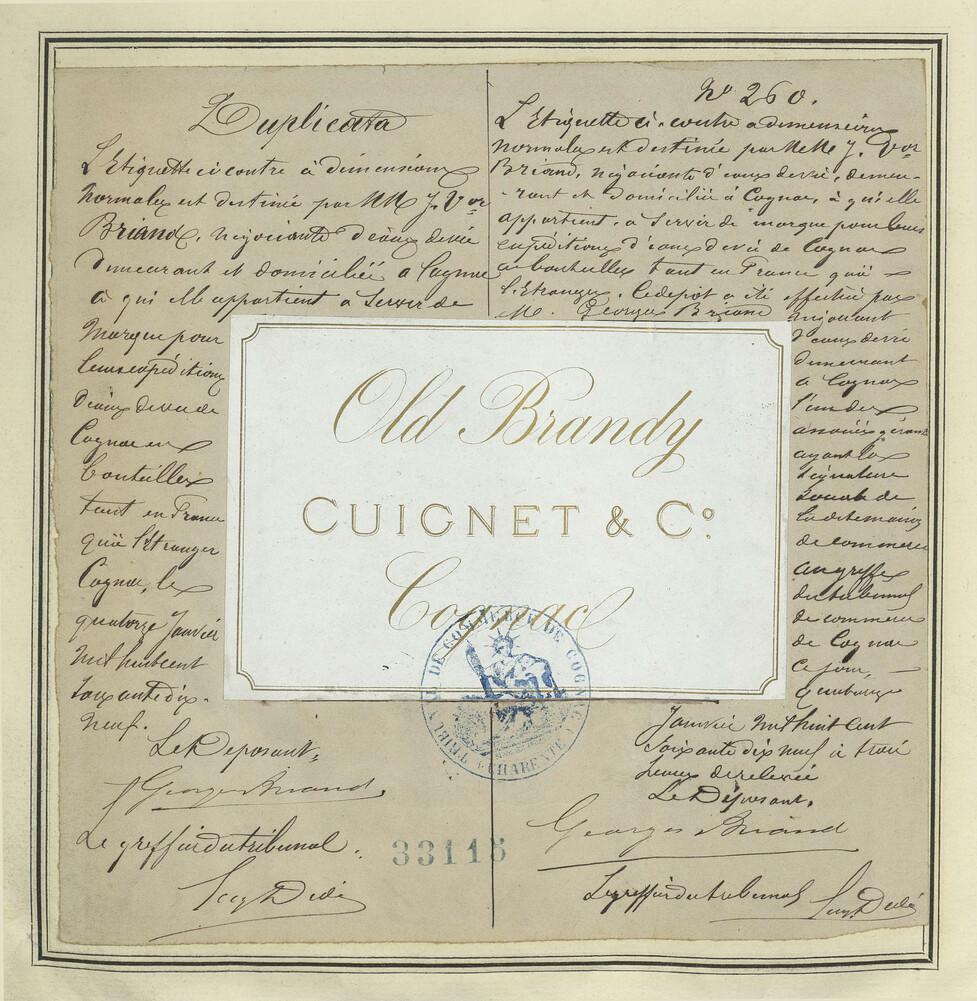 Duplicata
L'Etiquette ci contre à dimensions
Normales est destinée par MM J. Vor
Briand, négociants d'eaux de vie
demeurant et domiciliée a Cognac
à qui elle appartient a Servir de
Marque pour
leurs expéditions
d'eaux de vie de
Cognac en
bouteilles
tant en France
qu'à l'étranger
Cognac, le
quatorze Janvier
Mil huit cent
Soixante dix-
Neuf.
Le Déposant,
Georges Briand
Le greffier du tribunal.
No 260.
L'Etiquette ci-contre a dimensions
normales est destinée par MM J. Vor
Briand, négociants d'eaux de vie, demeu-
-rant et domiciliée à Cognac, à qui elle
appartient, a Servir de marque pour leurs
expéditions d'eaux de vie de Cognac
en bouteilles tant en France qu'à
l'Etranger. Ce dépôt a été effectué par
M. Georges Briand négociant
d'eaux de vie
demeurant
a Cognac
l'un des
associés gérant
ayant la
signature
sociale de
la dite maison
de commerce
au greffe
du tribunal
de commerce
de Cognac
ce jour,
quatorze
Janvier Mil huit cent
Soixante dix neuf à trois
heures de relevée
Le Déposant.
Georges Briand
Le greffier du tribunal
Old Brandy
CUIGNET & Co.
Cognac
TRIBUNAL DE COMMERCE DE COGNAC
CHARENTE
33115